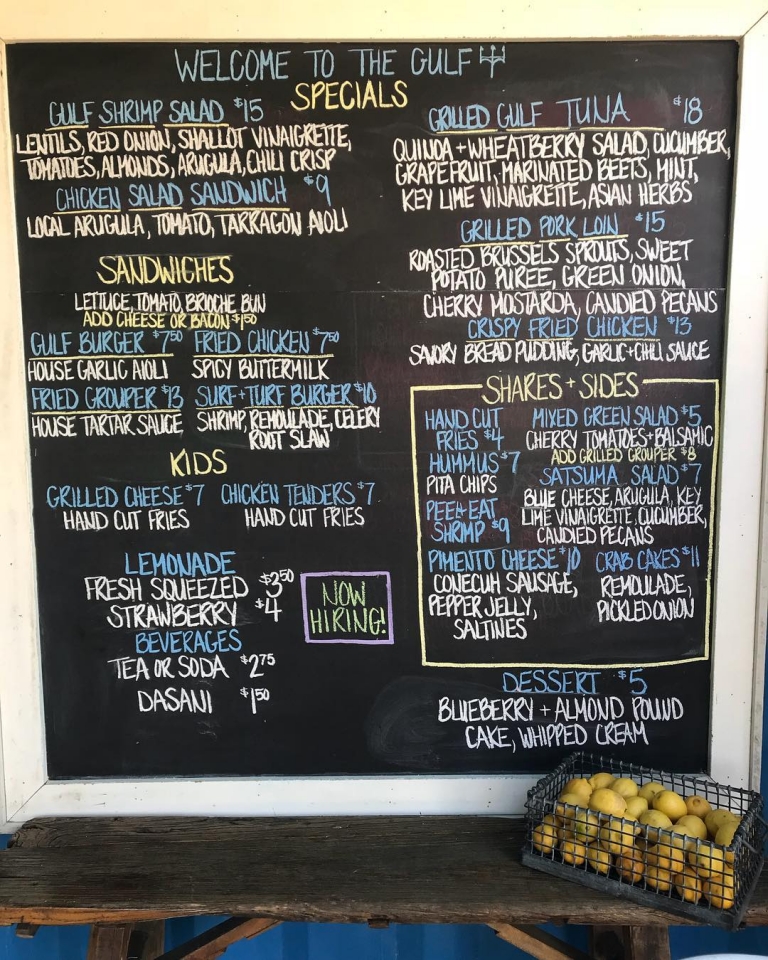 WELCOME TO THE GULF
SPECIALS
GULF SHRIMP SALAD $15
LENTILS, RED ONION, SHALLOT VINAIGRETTE,
TOMATOES, ALMONDS, ARUGULA, CHILI CRISP
CHICKEN SALAD SANDWICH $9
LOCAL ARUGULA, TOMATO, TARRAGON AIOLI
SANDWICHES
LETTUCE, TOMATO, BRIOCHE BUN
ADD CHEESE OR BACON $1.50
GULF BURGER $7.50 FRIED CHICKEN $7.50
HOUSE GARLIC AIOLI SPICY BUTTERMILK
FRIED GROUPER $13 SURF+TURF BURGER $10
HOUSE TARTAR SAUCE SHRIMP, REMOULADE, CELERY
ROOT SLAW
KIDS
GRILLED CHEESE $7 CHICKEN TENDERS $7
HAND CUT FRIES HAND CUT FRIES
LEMONADE
FRESH SQUEEZED $3.50
STRAWBERRY $4
BEVERAGES
TEA OR SODA $2.75
DASANI $1.50
NOW
HIRING!
GRILLED GULF TUNA $18
QUINOA + WHEATBERRY SALAD, CUCUMBER,
GRAPEFRUIT, MARINATED BEETS, MINT,
KEY LIME VINAIGRETTE, ASIAN HERBS
GRILLED PORK LOIN $15
ROASTED BRUSSELS SPROUTS, SWEET
POTATO PUREE, GREEN ONION,
CHERRY MOSTARDA, CANDIED PECANS
CRISPY FRIED CHICKEN $13
SAVORY BREAD PUDDING, GARLIC+CHILI SAUCE
SHARES + SIDES
HAND CUT
FRIES $4
HUMMUS $7
PITA CHIPS
PEEL+EAT
SHRIMP $9
PIMENTO CHEESE $10
CONECUH SAUSAGE,
PEPPER JELLY,
SALTINES
MIXED GREEN SALAD $5
CHERRY TOMATOES+BALSAMIC
ADD GRILLED GROUPER $8
SATSUMA SALAD $7
BLUE CHEESE, ARUGULA, KEY
LIME VINAIGRETTE, CUCUMBER,
CANDIED PECANS
CRAB CAKES $11
REMOULADE,
PICKLED ONION
DESSERT $5
BLUEBERRY + ALMOND POUND
CAKE, WHIPPED CREAM